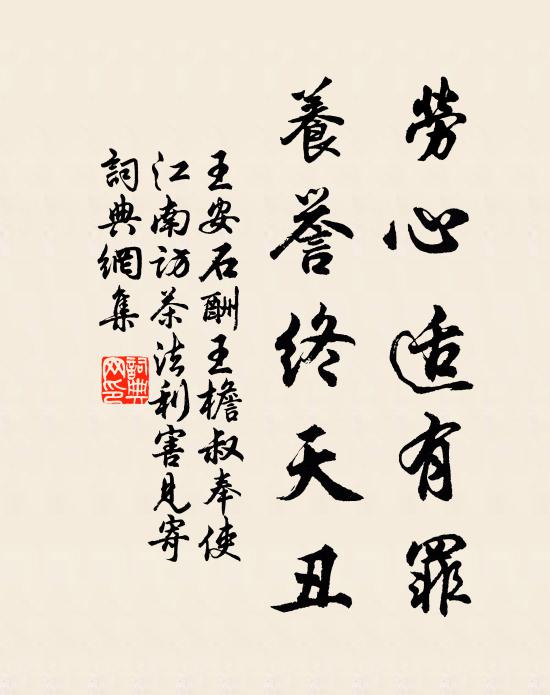 劳心适有罪
养誉终天丑
王安石酬王檐叔奉使
江南访茶法利害见寄
詞典網集
詞典网印